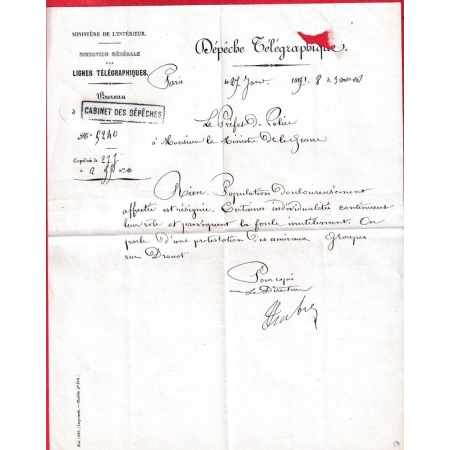 MINISTÈRE DE L'INTÉRIEUR.
DIRECTION GÉNÉRALE
DES
LIGNES TÉLÉGRAPHIQUES.
Bureau
CABINET DES DÉPÊCHES
N° 5240
Expédiée le 27
à
Dépêche Télégraphique.
Paris le 27 Janv. 1871. 8 h
Le Préfet de Police
à Monsieur le Ministre de la Guerre
Rien. Population douloureusement
affectée et résignée. Certaines individualités continuent
leur rôle et provoquent la foule inutilement. On
parle d'une protestation des amiraux Groupes
rue Drouot
Pour copie
Le Directeur